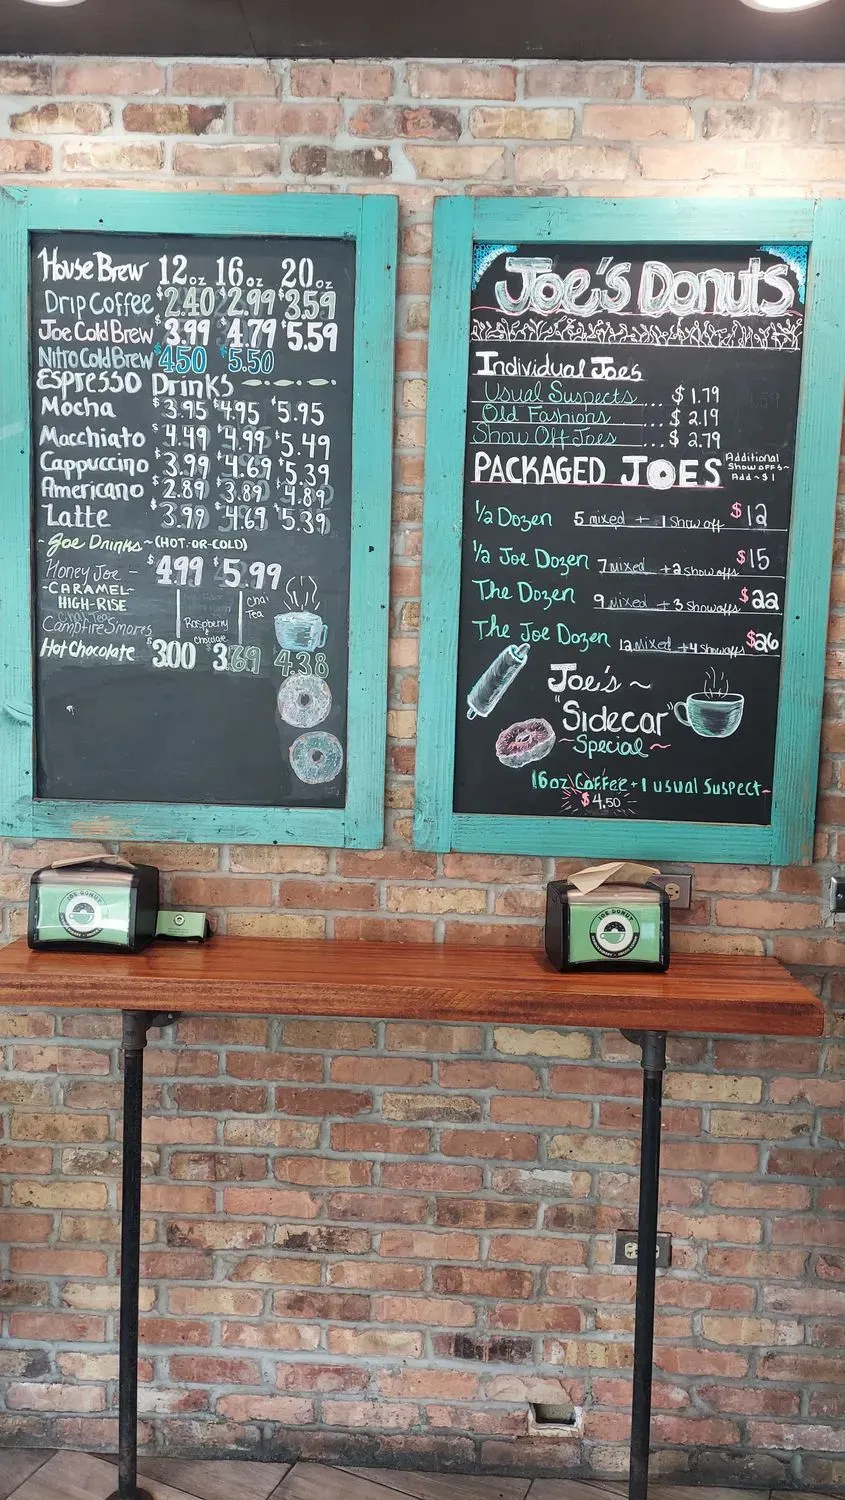 House Brew 12oz 16oz 20oz
Drip Coffee $2.40 $2.99 $3.59
Joe Cold Brew $3.99 $4.79 $5.59
Nitro Cold Brew $4.50 $5.50
Espresso Drinks
Mocha $3.95 $4.95 $5.95
Macchiato $4.49 $4.99 $5.49
Cappuccino $3.99 $4.69 $5.39
Americano $2.89 $3.89 $4.89
Latte $3.99 $4.69 $5.39
~Joe Drinks~ (HOT-OR-COLD)
Honey Joe - $4.99 $5.99
-CARAMEL-
HIGH-RISE
Chai Tea
Campfire Smores
Raspberry
&
Chocolate
Chai
Tea
Hot Chocolate 3.00 3.69 4.38
Joe's Donuts
Individual Joes
Usual Suspects... $1.79
Old Fashions ... $2.19
Show Off Joes ... $2.79
PACKAGED JOES
Additional
Show offs~
Add ~ $1
1/2 Dozen 5 mixed + 1 Show off $12
1/2 Joe Dozen 7 mixed + 2 showoffs $15
The Dozen 9 mixed + 3 showoffs $22
The Joe Dozen 12 mixed + 4 Showoffs $26
Joe's ~
"Sidecar"
~Special~
16oz Coffee + 1 usual Suspect-
$4.50
JOE DONUT
JOE DONUT